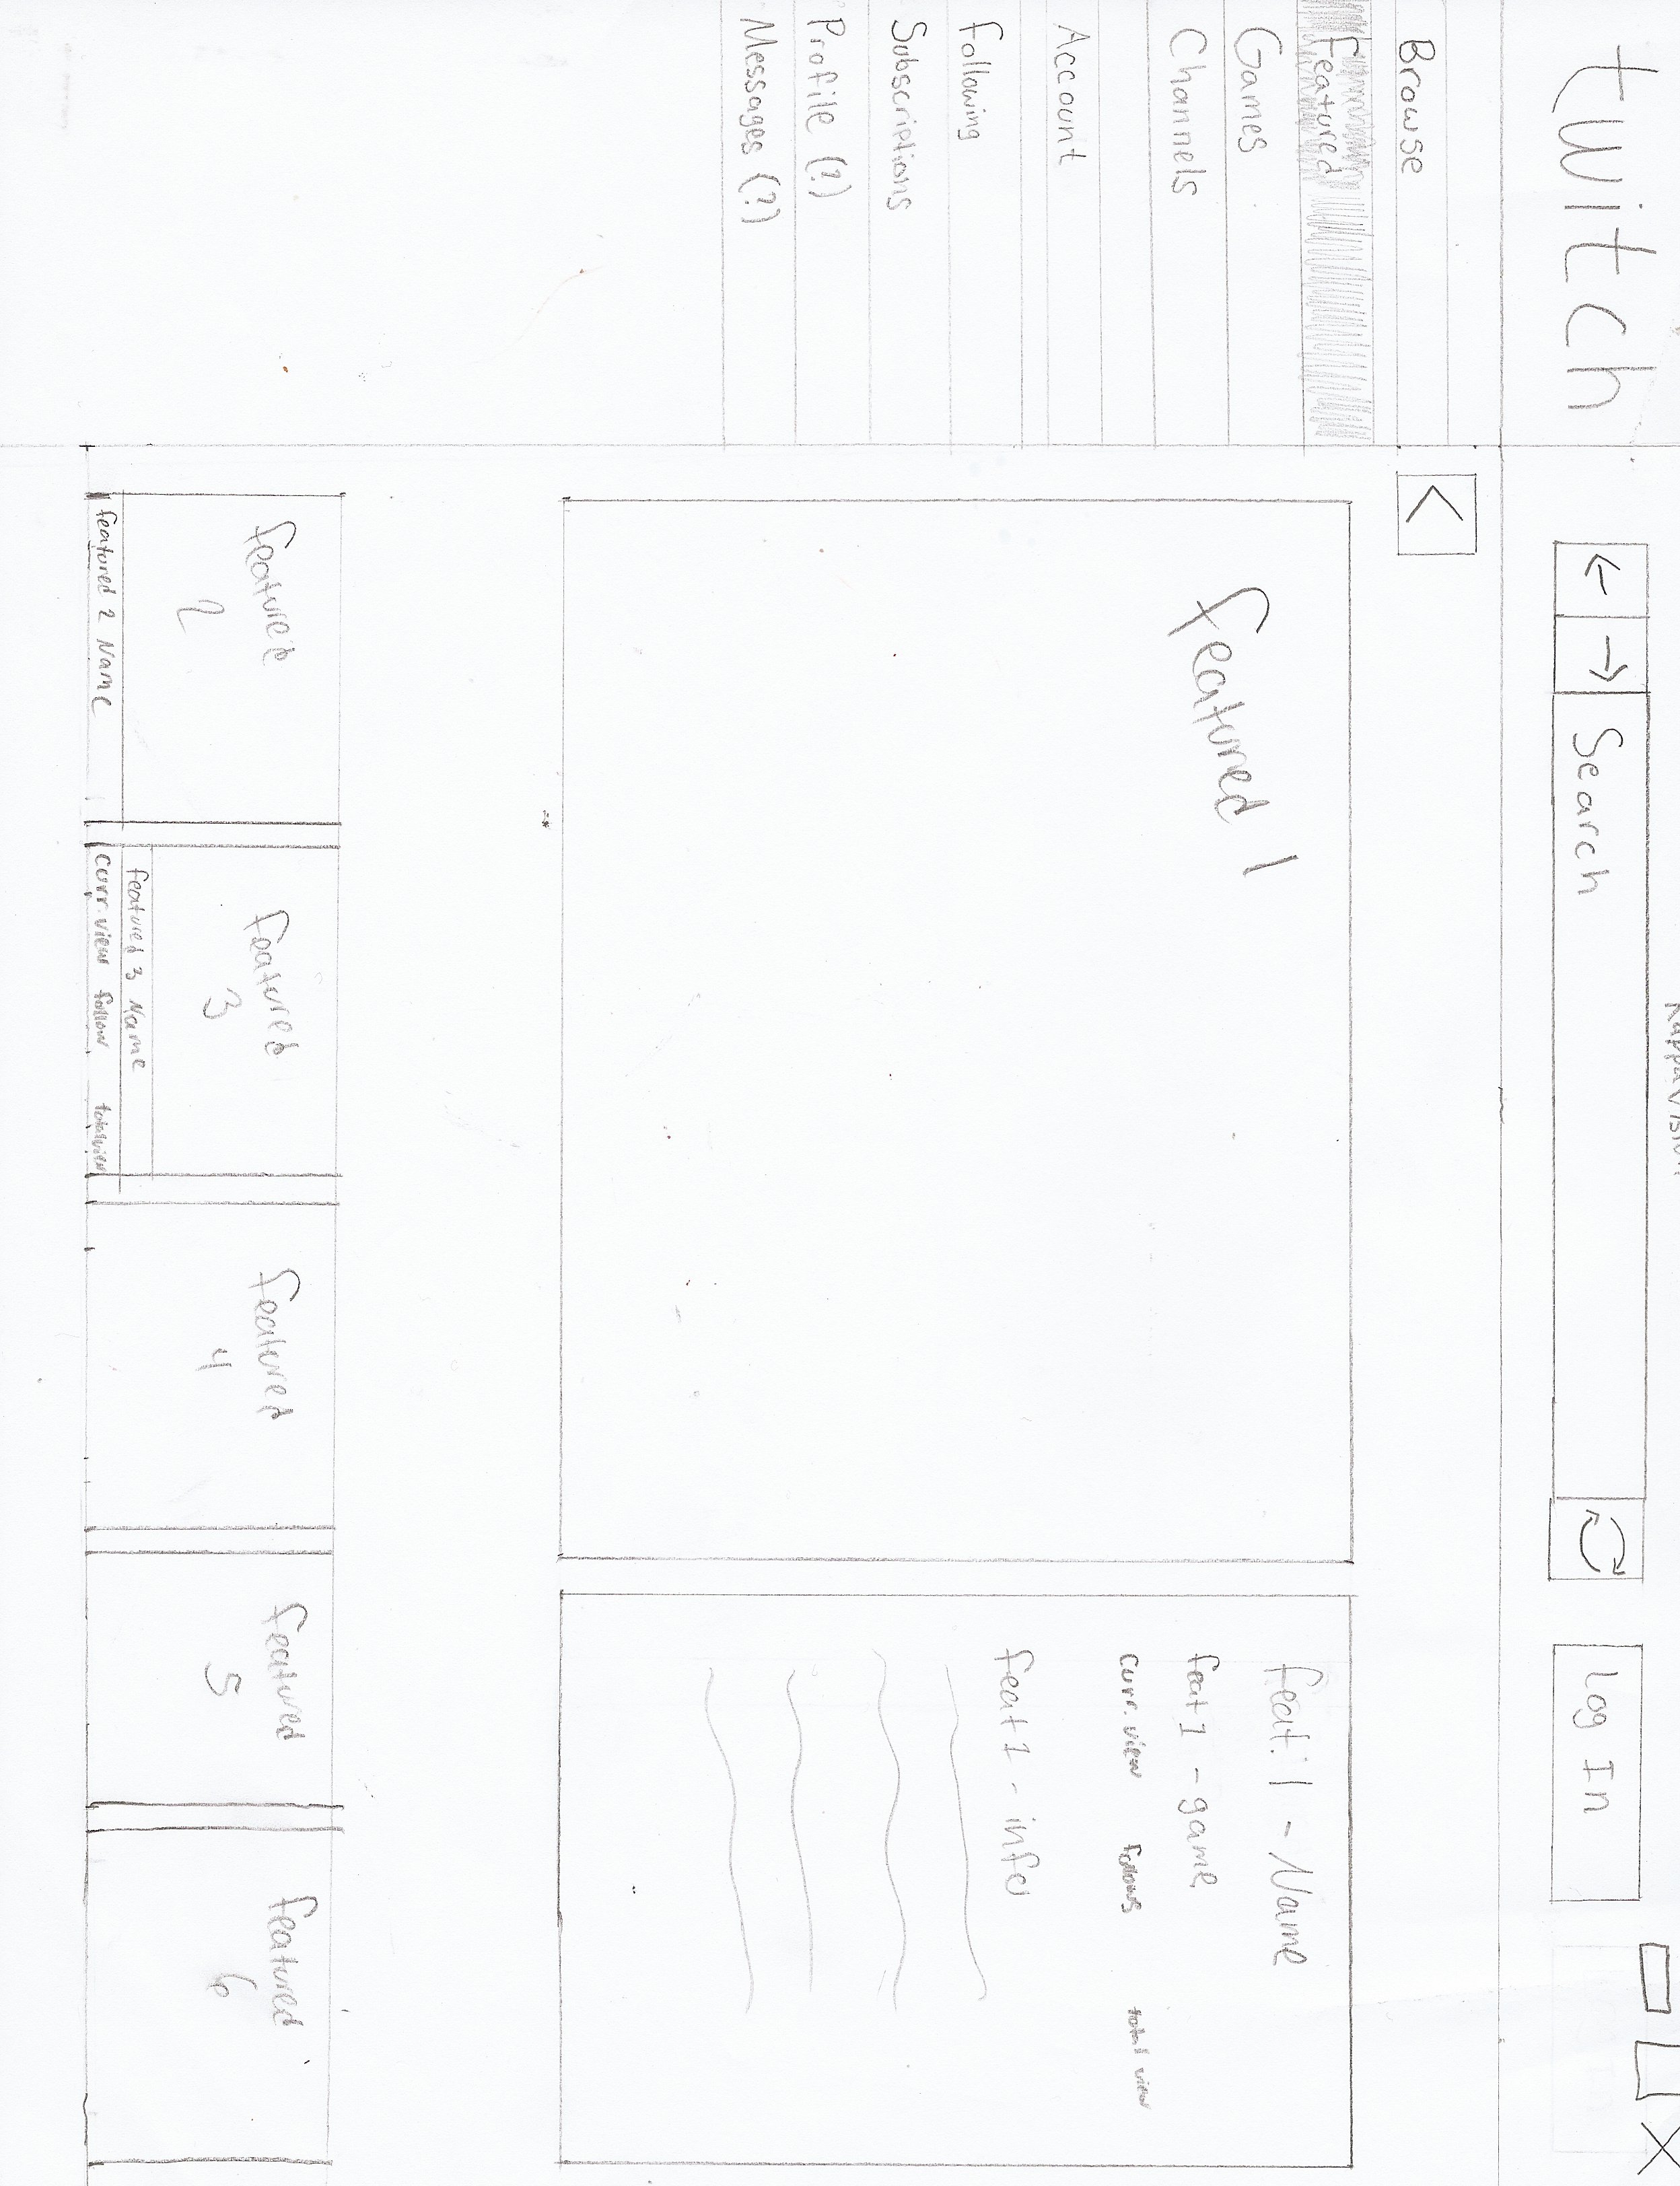 twitch
Search
Log In
X
Browse
Featured
Games
Channels
Account
Following
Subscriptions
Profile (?)
Messages (?)
Featured 1
Feat. 1 - Name
feat 1 - game
curr. view follows total view
feat 1 - info
Featured
2
featured 2 Name
Featured
3
featured 3 Name
curr. view follow totalview
Featured
4
Featured
5
Featured
6